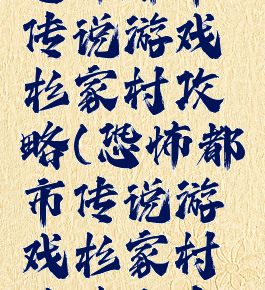 传说游戏
杉家村攻
略(恐怖都
市传说游
戏杉家村